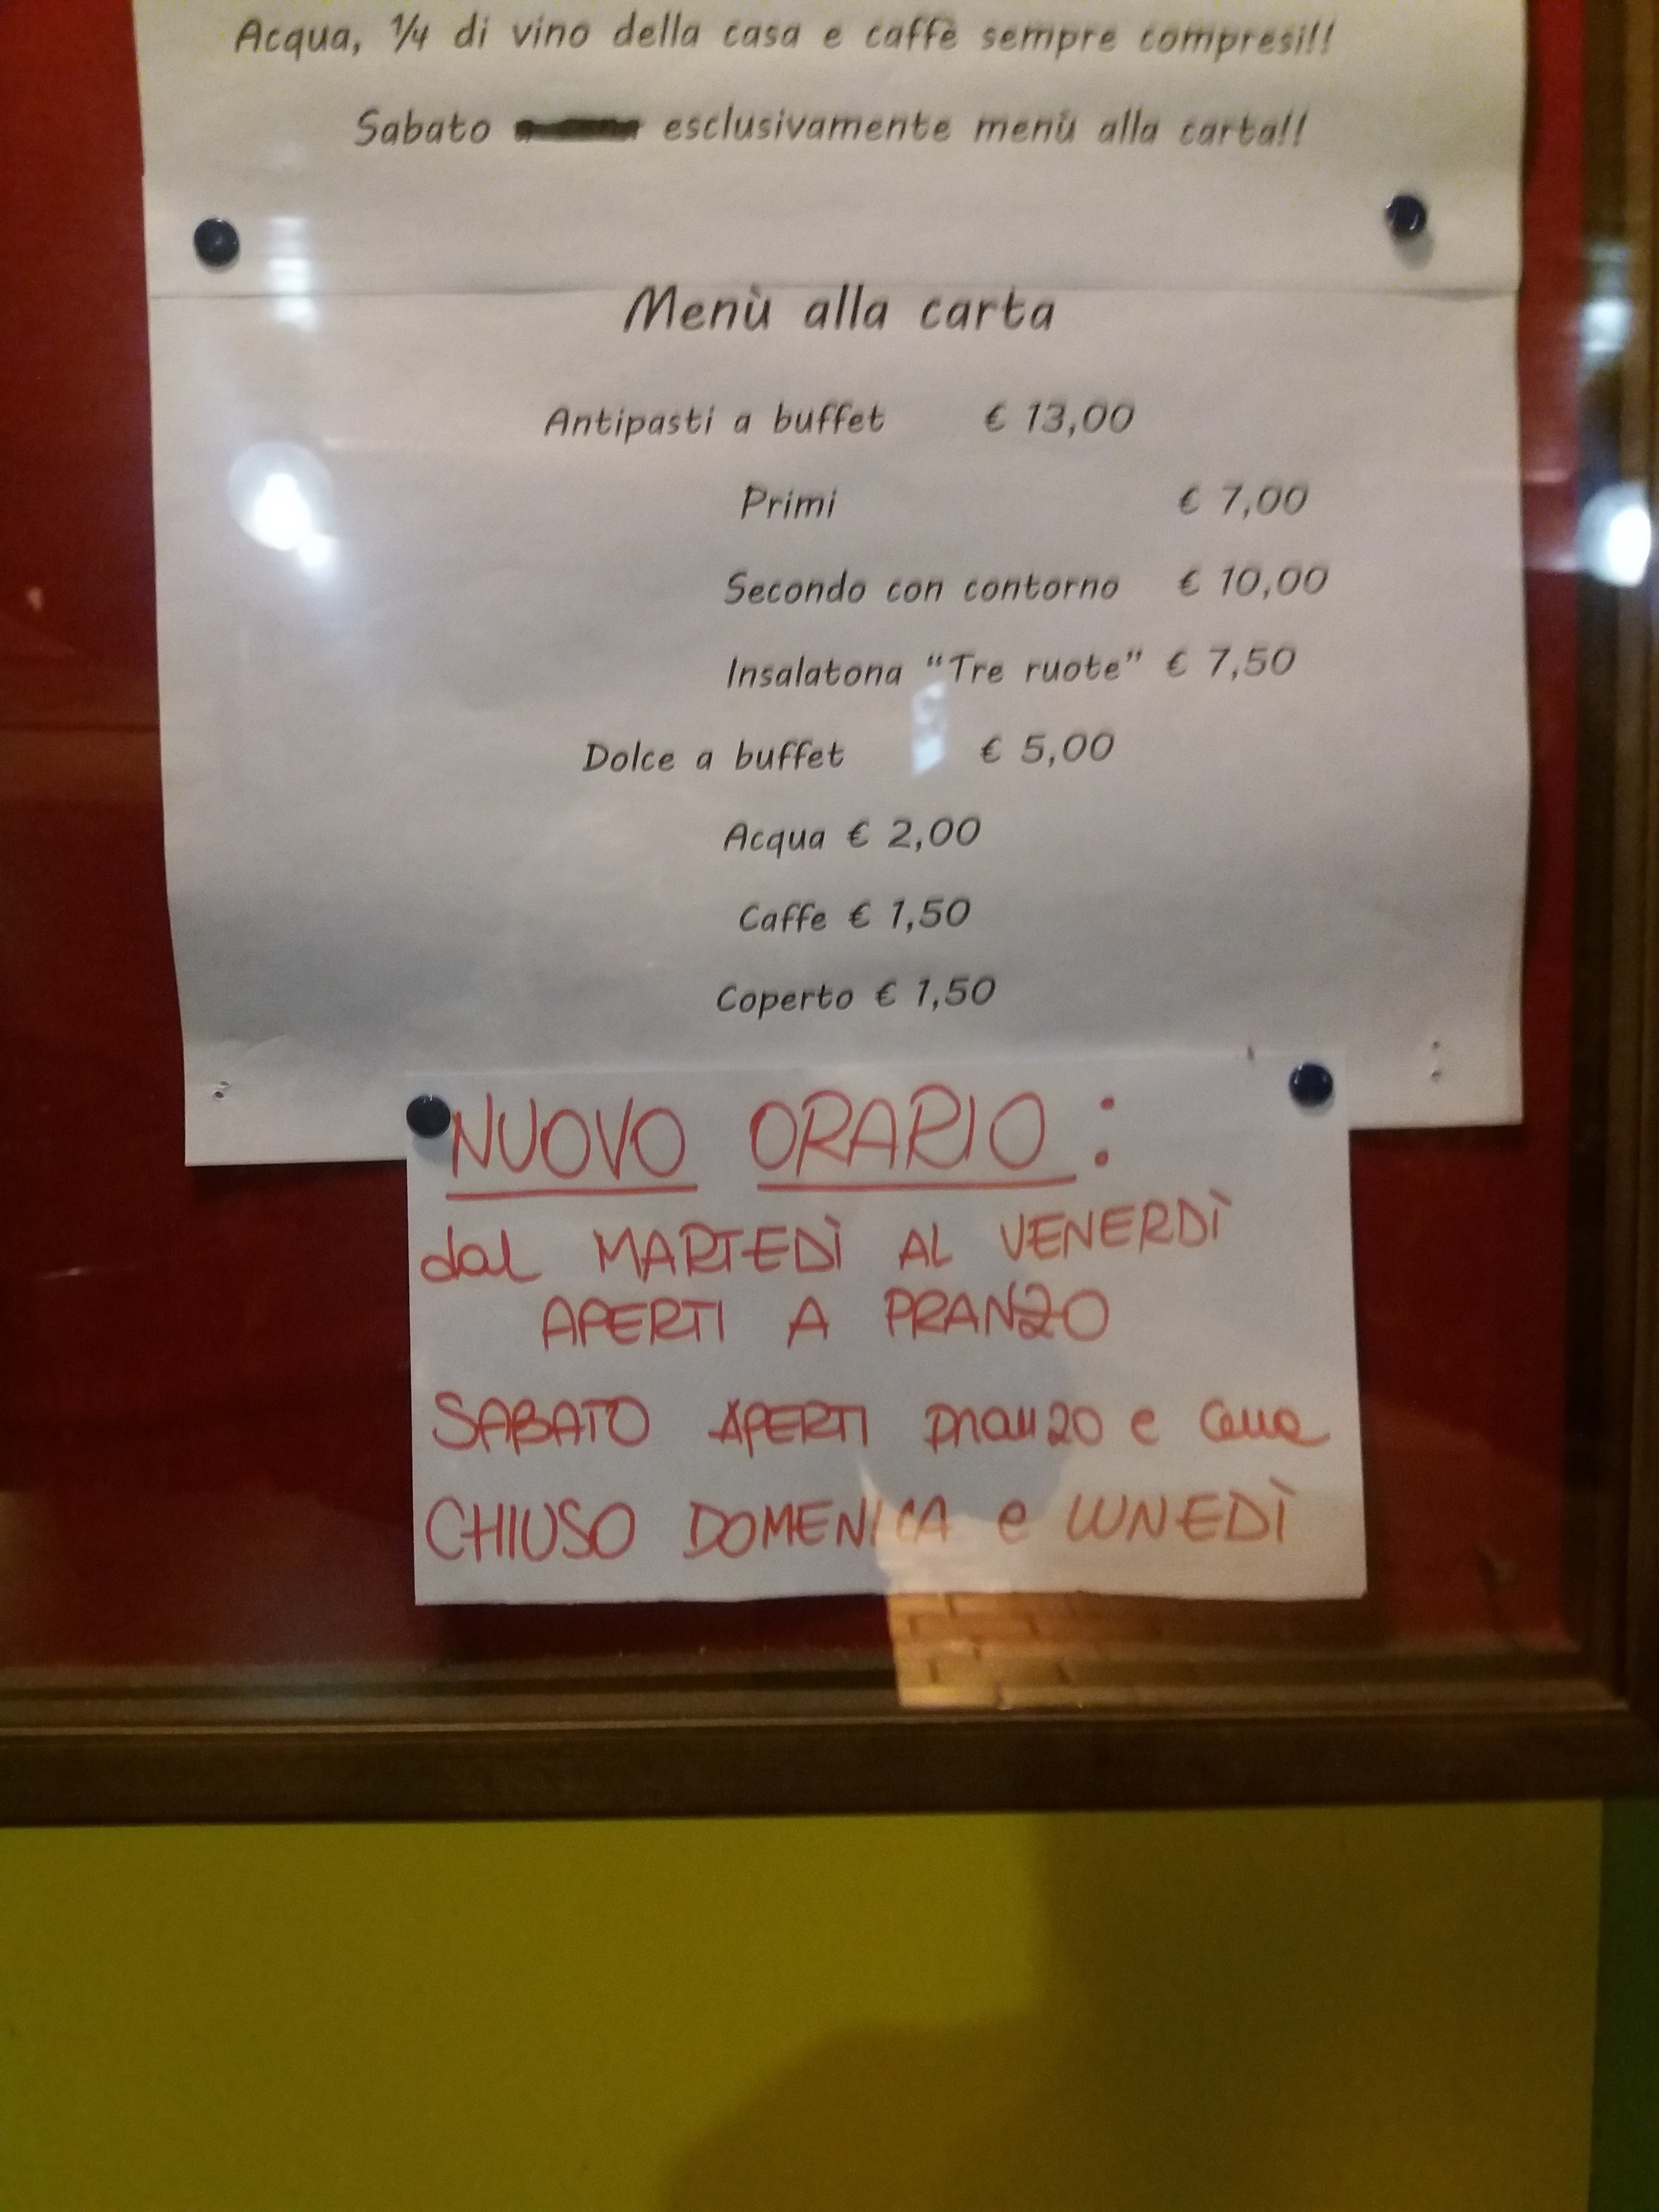 Acqua, ¼ di vino della casa e caffè sempre compresi!!
Sabato esclusivamente menù alla carta!!
Menù alla carta
Antipasti a buffet € 13,00
Primi € 7,00
Secondo con contorno € 10,00
Insalatona “Tre ruote” € 7,50
Dolce a buffet € 5,00
Acqua € 2,00
Caffe € 1,50
Coperto € 1,50
NUOVO ORARIO :
dal MARTEDÌ AL VENERDÌ
APERTI A PRANZO
SABATO APERTI pranzo e cena
CHIUSO DOMENICA e LUNEDÌ